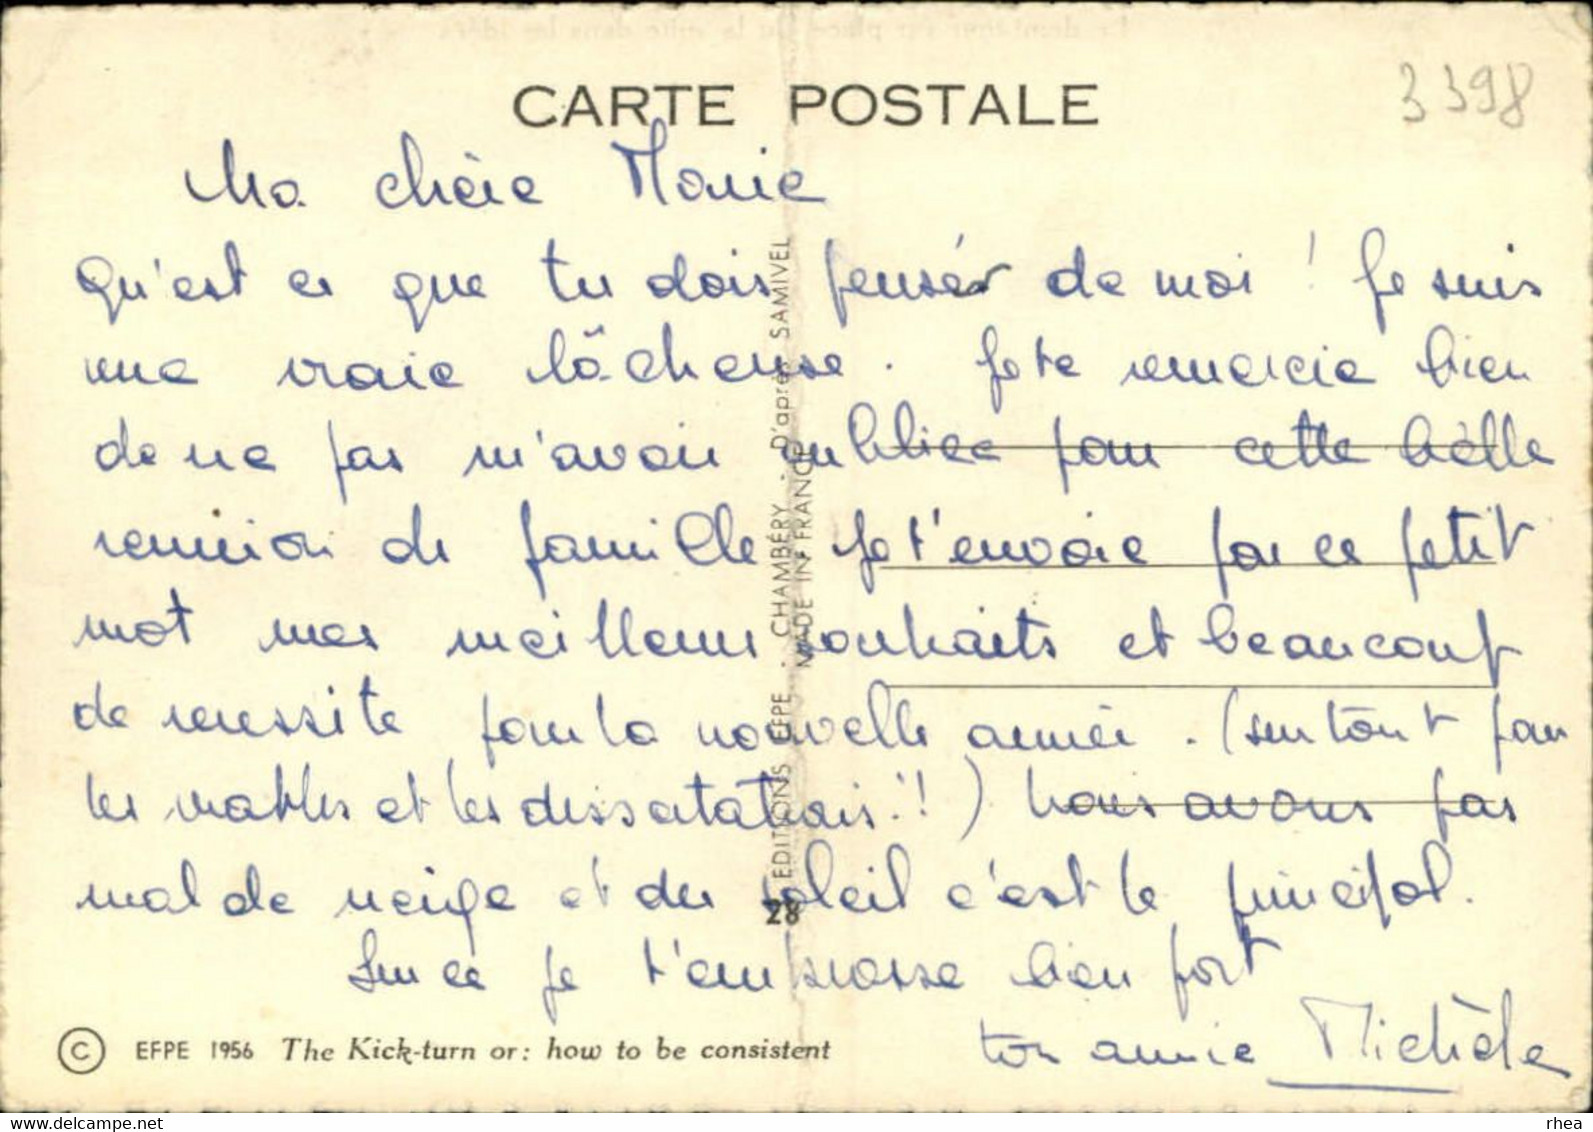 CARTE POSTALE
3398
Ma chère Marie
Qu'est ce que tu dois penser de moi ! Je suis
une vraie lâcheuse. Je te remercie bien
de ne pas m'avoir oubliée pour cette belle
reunion de famille Je t'envoie par ce petit
mot mes meilleurs souhaits et beaucoup
de reussite pour la nouvelle année. (surtout pour
les maths et les dissertations !!) Nous avons pas
mal de neige et du soleil c'est le principal.
Sur ce je t'embrasse bien fort
ton amie Michèle
EDITIONS EFPE - CHAMBÉRY - D'après SAMIVEL
MADE IN FRANCE
28
© EFPE 1956 The Kick-turn or: how to be consistent
www.delcampe.net
rhea